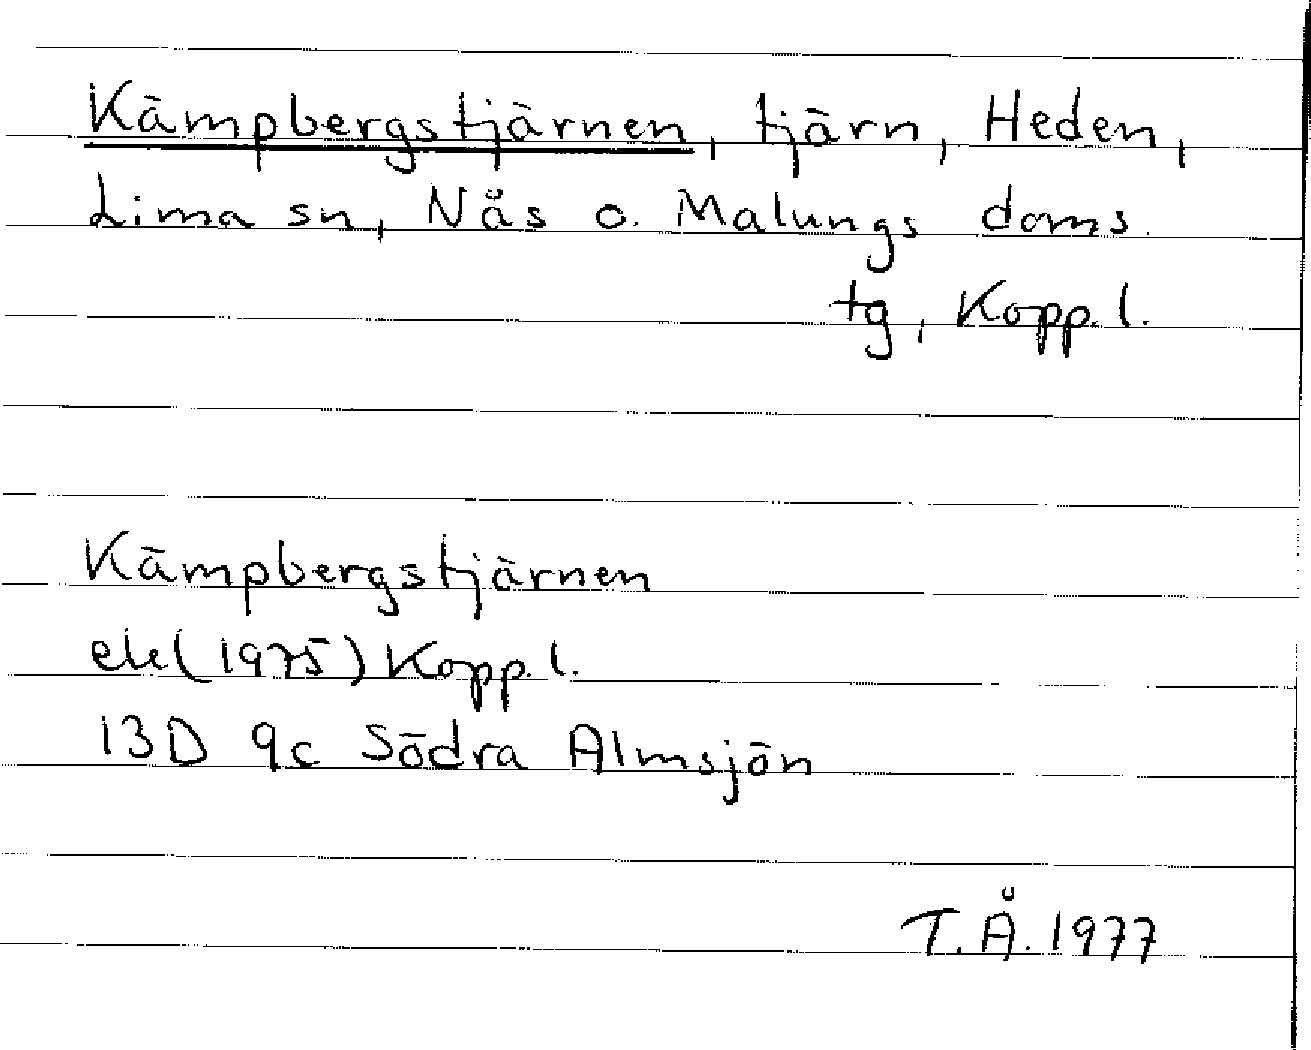 Kämpbergstjärnen, tjärn, Heden,
Lima sn, Nås o. Malungs doms.
tg, Kopp. l.
Kämpbergstjärnen
ek (1975) Kopp. l.
13D 9c Södra Almsjön
T.Å. 1977